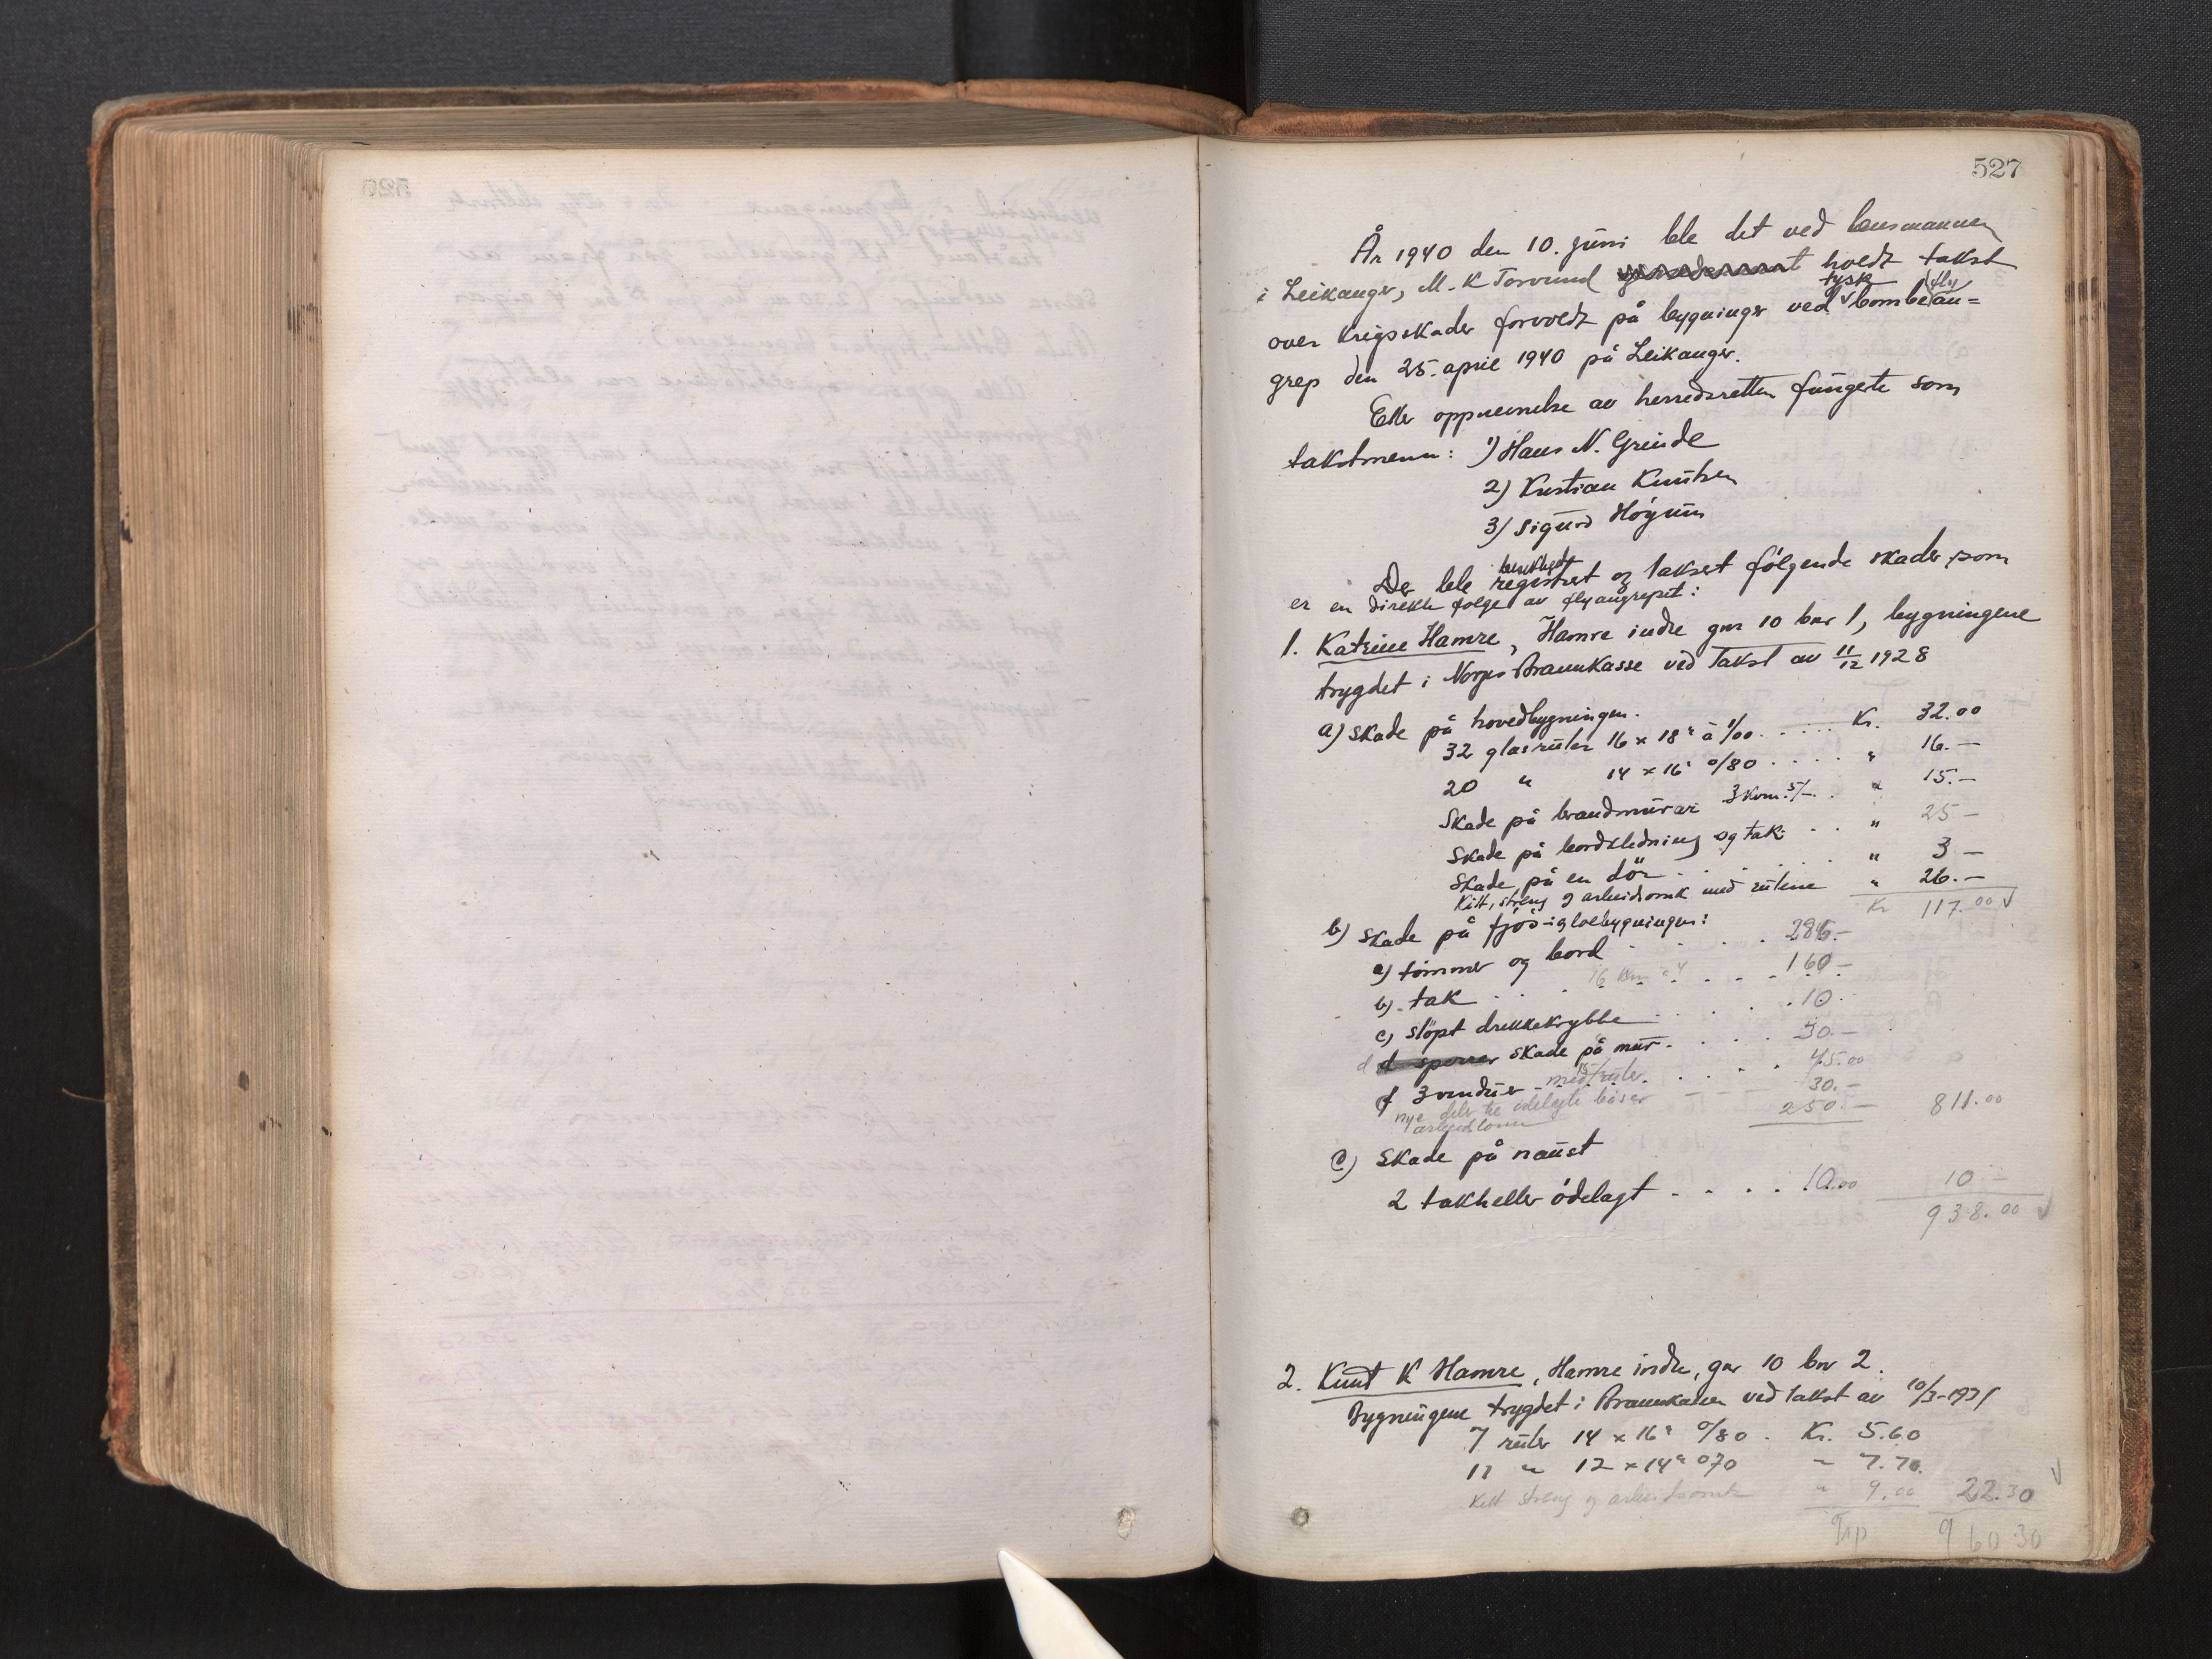 527
År 1940 den 10. juni ble det ved lensmannen
i Leikanger, M. K Torvund holdt takst
tysk (fly)
over krigsskader forvoldt på bygninger ved bombean=
grep den 25. april 1940 på Leikanger.
Etter oppnevnelse av herredsretten fungerte som
takstmenn: 1) Hans N. Grinde
2) Kristian Knutsen
3) Sigurd Høyum
besiktiget
Der ble registrert og taksert følgende skader som
er en direkte følge av flyangrepet:
1. Katrine Hamre, Hamre indre gnr 10 bnr 1, bygningene
trygdet i Norges Brannkasse ved takst av 11/12 1928
a) Skade på hovedbygningen.
32 glasruter 16 x 18" à 1/00 . . . . . Kr. 32.00
20 " 14 x 16" 0/80 . . . . " 16.—
Skade på brandmurar 3 kvm. 5/-. . " 15.—
Skade på bordkledning og tak . . " 25 —
Skade på en dör . . . . . " 3 —
Kitt, streng og arbeidsomk med rutene " 26.—
Kr 117.00 ✓
b) Skade på fjös- og loebygningen:
a) tömmer og bord . . . . . 286.—
b) tak . . . 16 kvm a 4 . . . . 160 —
c) stöpt drikkekrybbe . . . . . 10.
d skade på mur . . . . 30.—
f 3 vinduer med 15 ruter . . . . 45.00
nye deler til ödelagte båser — — 30.—
arbeidslönn 250.— 811.00
c) Skade på naust
2 takheller ödelagt - . . . . 10.00 10 —
938.00 ✓
2. Knut K Hamre, Hamre indre, gnr 10 bnr 2.
Bygningene trygdet i Brannkassen ved takst av 10/3-1931
7 ruter 14 x 16" 0/80 . Kr. 5.60
11 " 12 x 14" 070 " 7.70. ✓
Kitt streng og arbeidsomk " 9.00 22.30
Trsp 960.30